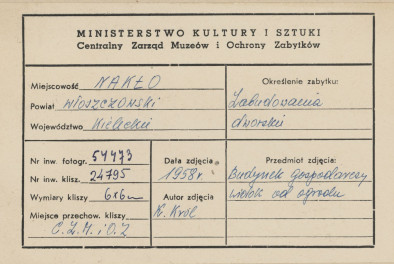 MINISTERSTWO KULTURY I SZTUKI
Centralny Zarząd Muzeów i Ochrony Zabytków
Miejscowość NAKŁO
Powiat WŁOSZCZOWSKI
Województwo Kieleckie
Określenie zabytku:
Zabudowania
dworskie
Nr inw. fotogr. 54473
Nr inw. klisz. 24795
Wymiary kliszy 6x6
Miejsce przechow. kliszy
C.Z.M.iO.Z
Data zdjęcia
1958r
Autor zdjęcia
K. Król
Przedmiot zdjęcia:
Budynek gospodarczy
widok od ogrodu